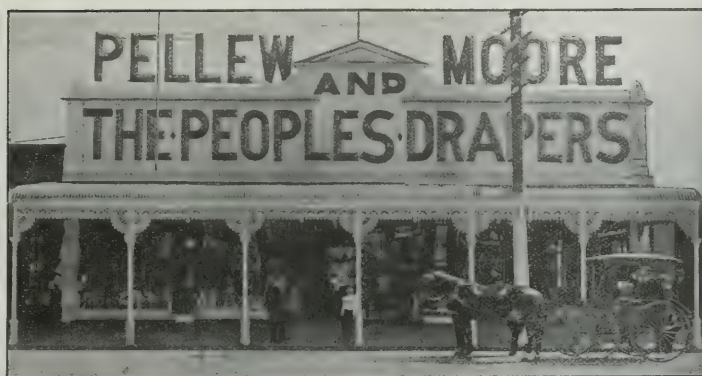 PELLEW AND MOORE
THE·PEOPLES·DRAPERS